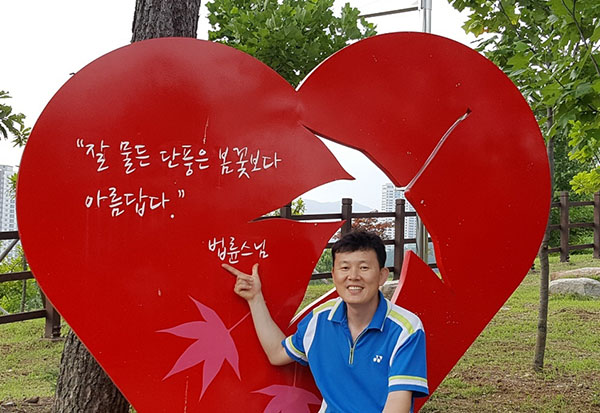 "잘 물든 단풍은 봄꽃보다
아름답다."
법륜스님